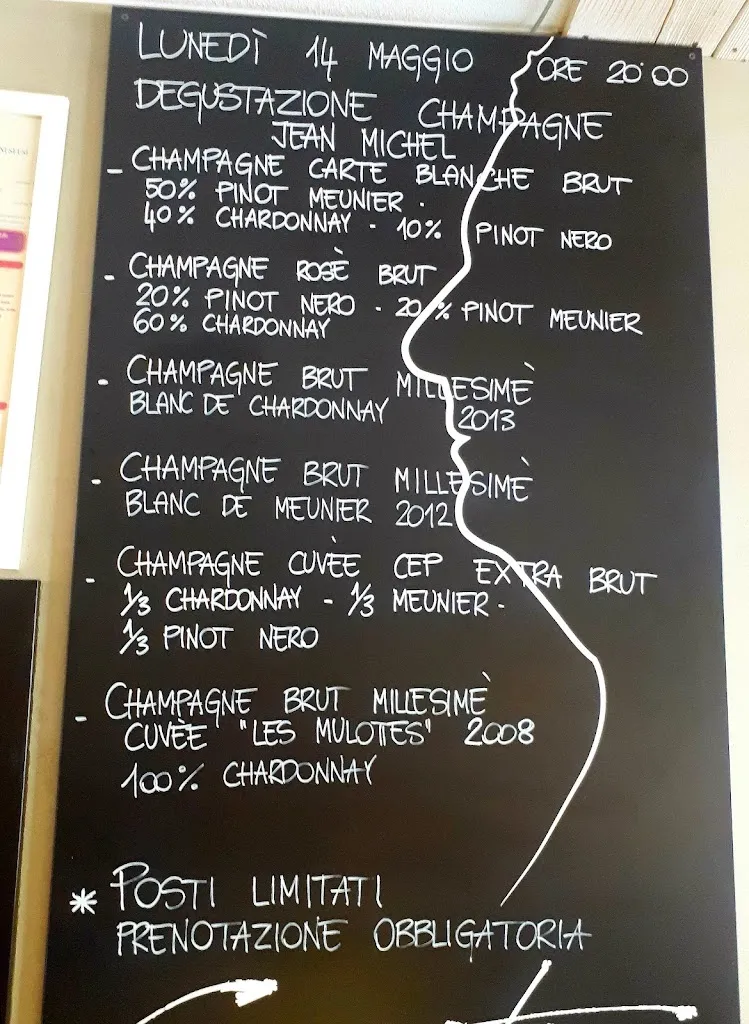 LUNEDÌ 14 MAGGIO ORE 20°00
DEGUSTAZIONE CHAMPAGNE
JEAN MICHEL
- CHAMPAGNE CARTE BLANCHE BRUT
50% PINOT MEUNIER -
40% CHARDONNAY - 10% PINOT NERO
- CHAMPAGNE ROSÈ BRUT
20% PINOT NERO - 20% PINOT MEUNIER
60% CHARDONNAY
- CHAMPAGNE BRUT MILLESIMÈ
BLANC DE CHARDONNAY 2013
- CHAMPAGNE BRUT MILLESIMÈ
BLANC DE MEUNIER 2012
- CHAMPAGNE CUVÈE CEP EXTRA BRUT
1/3 CHARDONNAY - 1/3 MEUNIER -
1/3 PINOT NERO
- CHAMPAGNE BRUT MILLESIMÈ
CUVÈE "LES MULOTTES" 2008
100% CHARDONNAY
* POSTI LIMITATI
PRENOTAZIONE OBBLIGATORIA